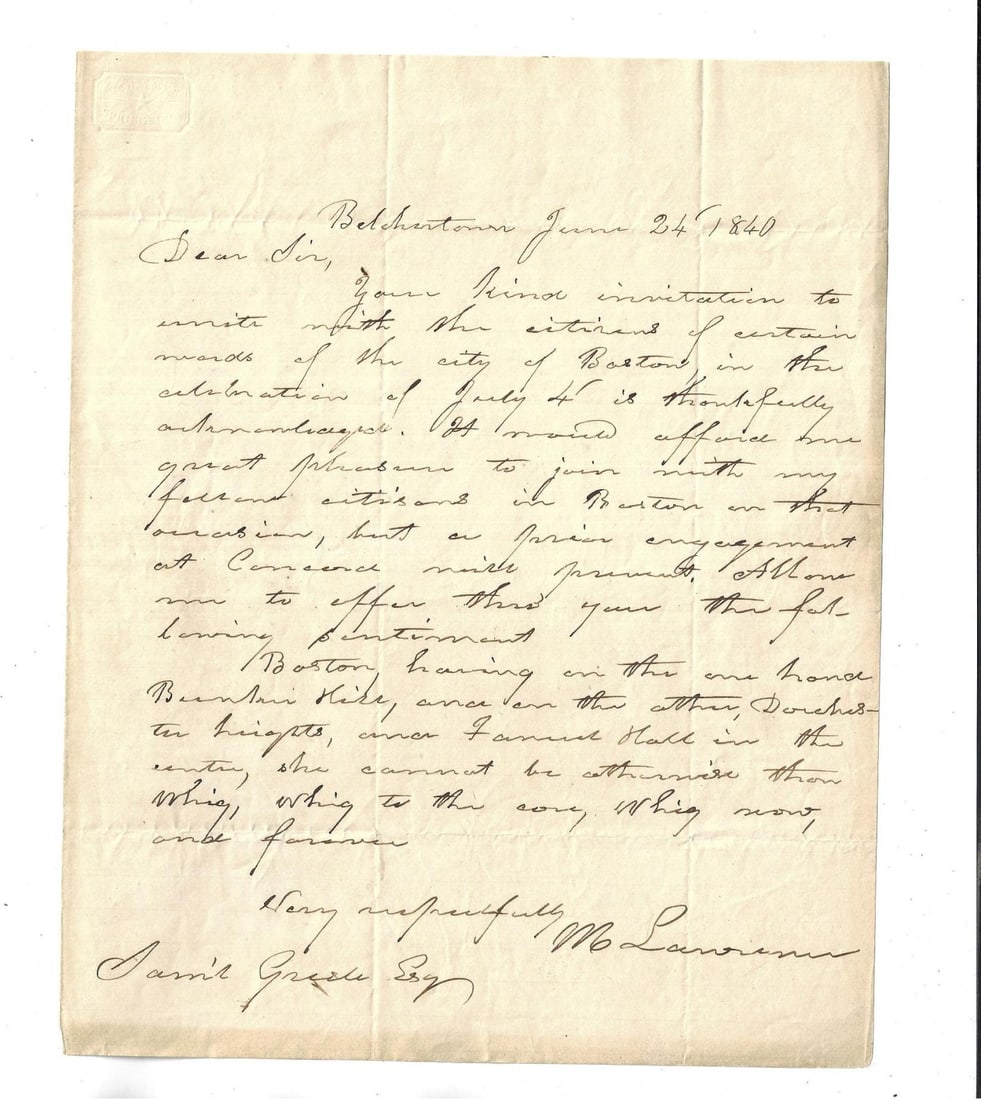 Belchertown June 24 1840
Dear Sir,
Your kind invitation to
unite with the citizens of certain
wards of the city of Boston, in the
celebration of July 4 is thankfully
acknowledged. It would afford me
great pleasure to join with my
fellow citizens in Boston on that
occasion, but a prior engagement
at Concord will prevent. Allow
me to offer thro' you the fol-
lowing sentiment
Boston, having on the one hand
Bunker Hill, and on the other, Dorches-
ter heights, and Faneuil Hall in the
centre, she cannot be otherwise than
Whig, Whig to the core, Whig now,
and forever
Very respectfully
M Lawrence
Sam'l Esq